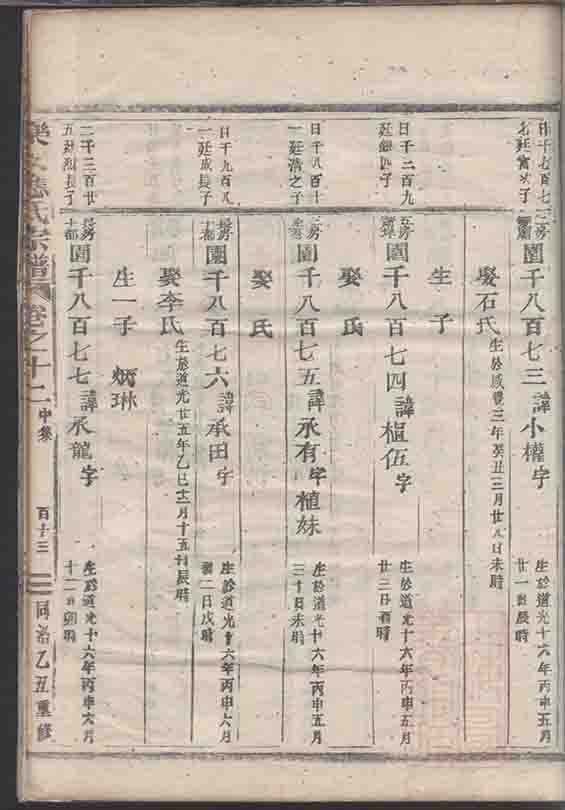 園千八百七三諱小權字
生於道光十六年丙申五月
廿一日辰時
娶石氏
生於咸豐三年癸丑三月廿八日未時
日千二百九
園千八百七四諱植伍字
生於道光十六年丙申五月
廿三日酉時
生子
日千八百十
一廷浩之子
園千八百七五諱承有字植妹
生於道光十六年丙申五月
三十日未時
娶氏
日千九百八
一廷成長子
長房
園千八百七六諱承田字
生於道光十六年丙申六月
初二日戌時
娶氏
二千三百廿
五廷烈長子
長房
十都
園千八百七七諱承龍字
生於道光十六年丙申六月
十二日卯時
娶李氏
生於道光廿五年乙巳十二月十五日辰時
生一子 炳琳
氏宗譜 卷之十二 中集 百十三 同治乙丑重修